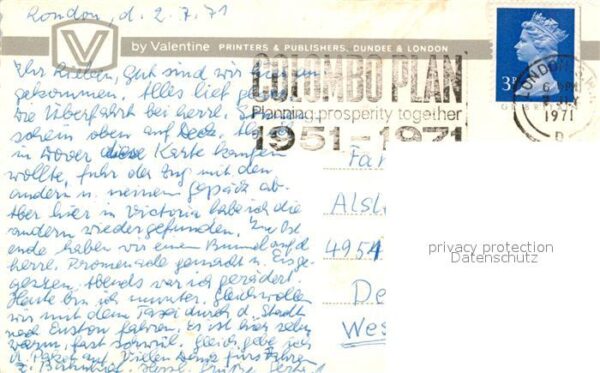 London, d. 2.7.71
V by Valentine PRINTERS & PUBLISHERS, DUNDEE & LONDON
Ihr Lieben, Gut sind wir
gekommen. Alles lief
die Überfahrt bei herrl.
schein oben auf Deck. Als
in Dover diese Karte kaufen
wollte, fuhr der Zug mit den
andern u. meinem Gepäck ab.
Aber hier in Victoria habe ich die
andern wiedergefunden. In Ost
ende haben wir einen Bummel auf d.
herrl. Promenade gemacht u. Eis ge-
gessen. Abends war ich gerädert.
Heute bin ich munter. Gleich wollen
wir mit dem Taxi durch d. Stadt
nach Euston fahren. Es ist hier sehr
warm, fast schwül. Gleich gebe ich
Vielen Dank fürs Fahren
z. Bahnhof. Herzl. Grüße
COLOMBO PLAN
Planning prosperity together
1951-1971
3P
LONDON
JLY
1971
D
Fa
Alsl
4951
De
Wes
privacy protection
Datenschutz